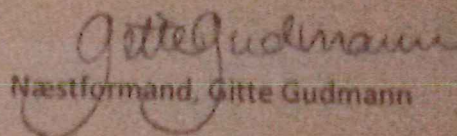 Gitte Gudmann
Næstformand, Gitte Gudmann